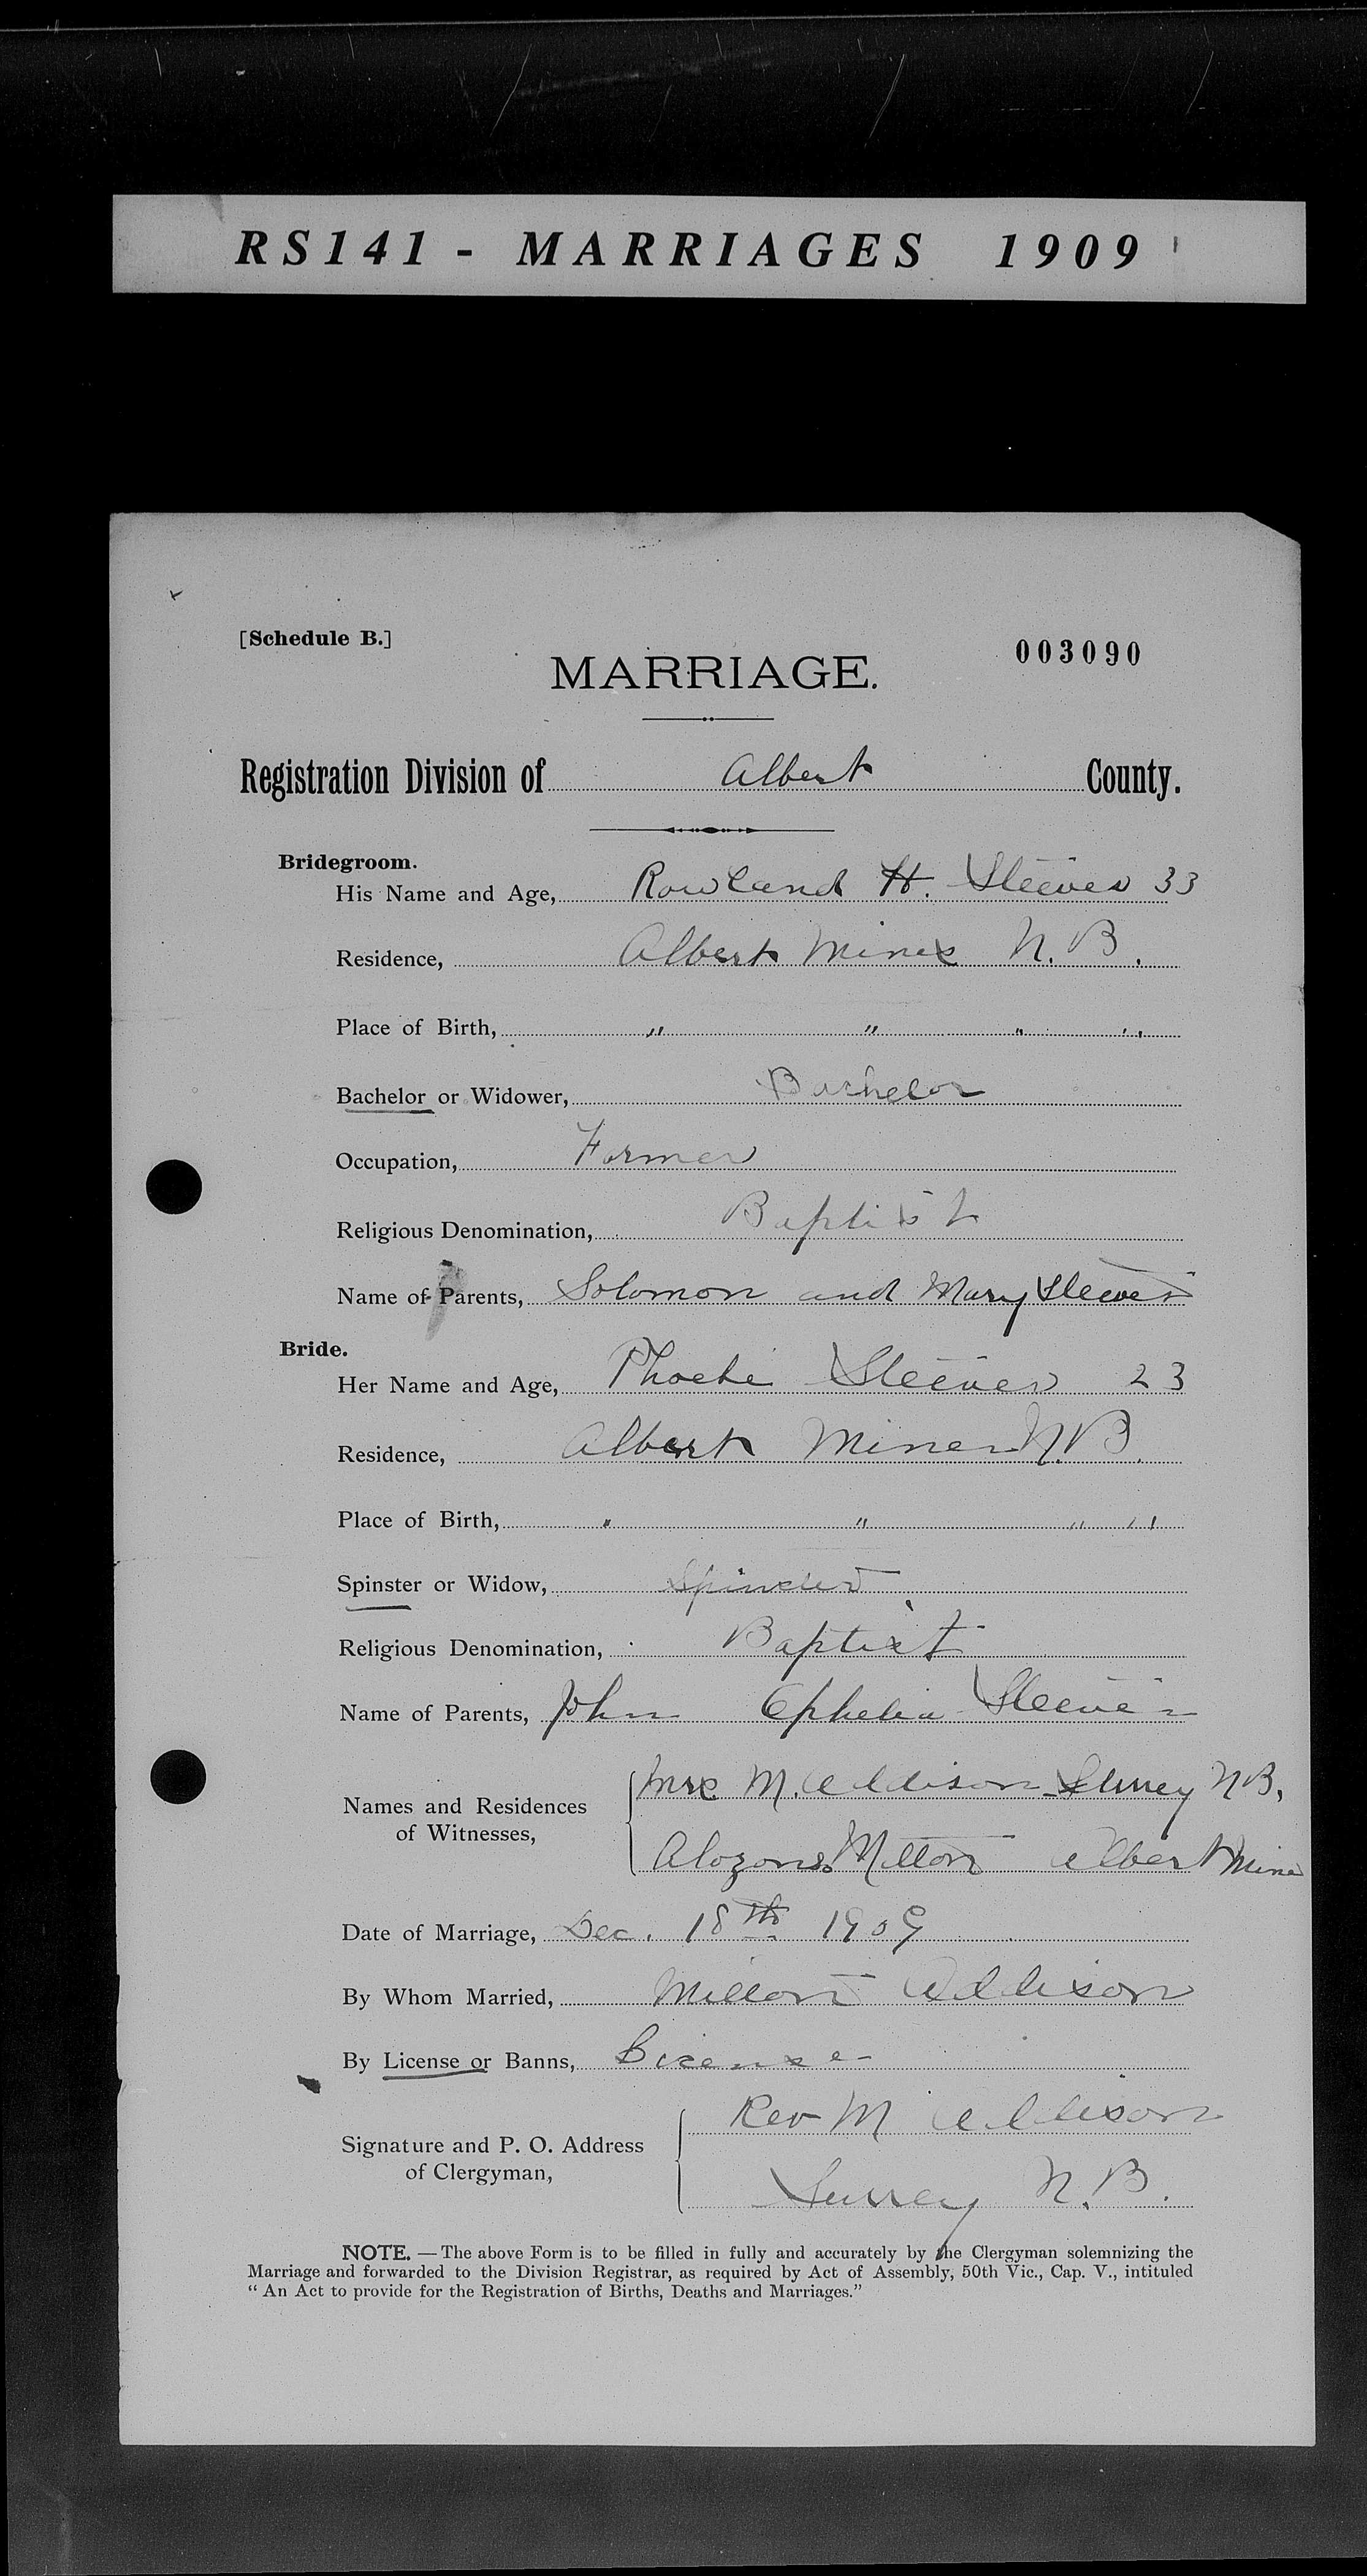 RS141 - MARRIAGES 1909
[Schedule B.]
003090
MARRIAGE.
Registration Division of Albert County.
Bridegroom.
His Name and Age, Rowland H. Steeves 33
Residence, Albert Mines N.B.
Place of Birth, " " " "
Bachelor or Widower, Bachelor
Occupation, Farmer
Religious Denomination, Baptist
Name of Parents, Solomon and Mary Steeves
Bride.
Her Name and Age, Phoebe Steeves 23
Residence, Albert Mines N.B.
Place of Birth, " " " "
Spinster or Widow, Spinster
Religious Denomination, Baptist
Name of Parents, John Ophelia Steeves
Names and Residences
of Witnesses,
Mrs M. Addison Surrey N.B.
Milton Albert Mines
Date of Marriage, Dec. 18th 1909
By Whom Married, Milton Addison
By License or Banns, License
Signature and P. O. Address
of Clergyman,
Rev M Addison
Surrey N.B.
NOTE. — The above Form is to be filled in fully and accurately by the Clergyman solemnizing the
Marriage and forwarded to the Division Registrar, as required by Act of Assembly, 50th Vic., Cap. V., intituled
“ An Act to provide for the Registration of Births, Deaths and Marriages.”